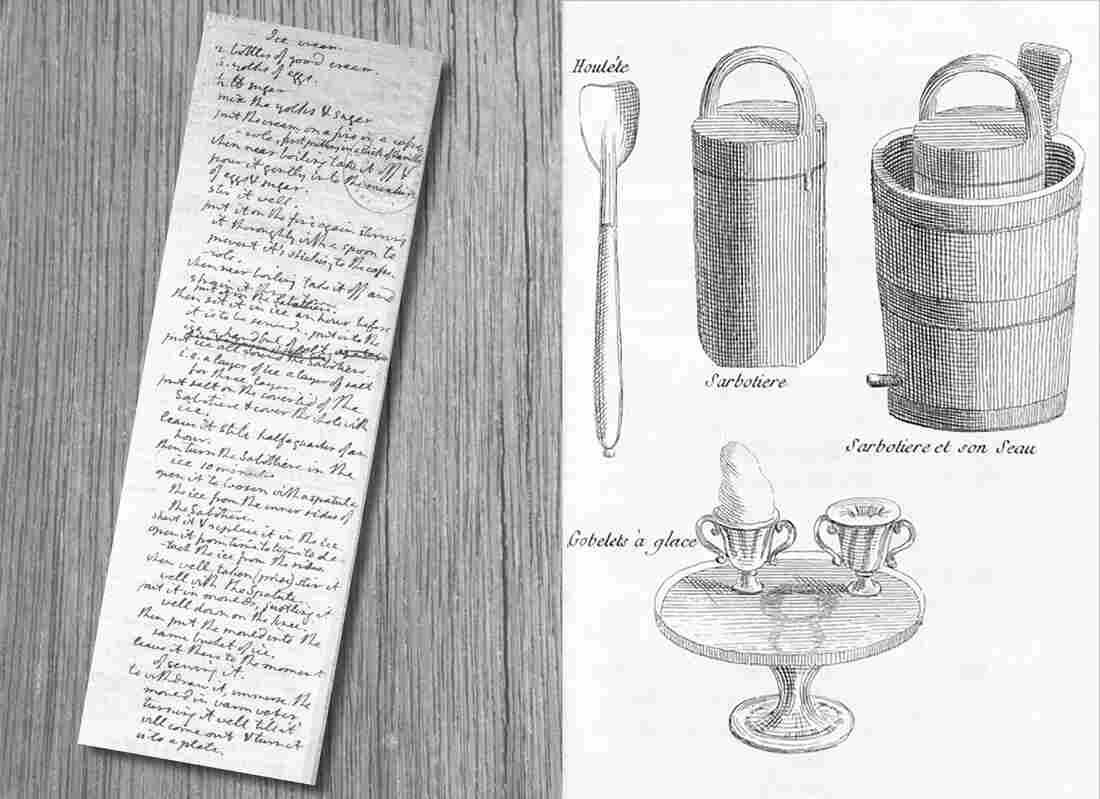 Ice cream.
2. bottles of good cream.
6. yolks of eggs.
1/2 lb sugar
mix the yolks & sugar
put the cream on a fire in a casse-
role, first putting in a stick of Vanilla.
when near boiling take it off &
pour it gently into the mixture
of eggs & sugar.
stir it well.
put it on the fire again stirring
it thoroughly with a spoon to
prevent it's sticking to the casse-
role.
when near boiling take it off and
strain it thro' a towel.
put it in the Sabottiere.
then set it in ice an hour before
it is to be served. put into the
ice a handful of salt.
put ice all around the Sabottiere
i.e. a layer of ice a layer of salt
for three layers.
put salt on the coverlid of the
Sabotiere & cover the whole with
ice.
leave it still half a quarter of an
hour.
then turn the Sabottiere in the
ice 10 minutes
open it to loosen with a spatula
the ice from the inner sides of
the Sabotiere.
shut it & replace it in the ice.
open it from time to time to de-
tach the ice from the sides
when well taken (prise) stir it
well with the Spatula.
put it in moulds, justling it
well down on the knee.
then put the mould into the
same bucket of ice.
leave it there to the moment
of serving it.
to withdraw it, immerse the
mould in warm water,
turning it well till it
will come out & turn it
into a plate.
Houlète
Sarbotiere
Sarbotiere et son Seau
Gobelets à glace